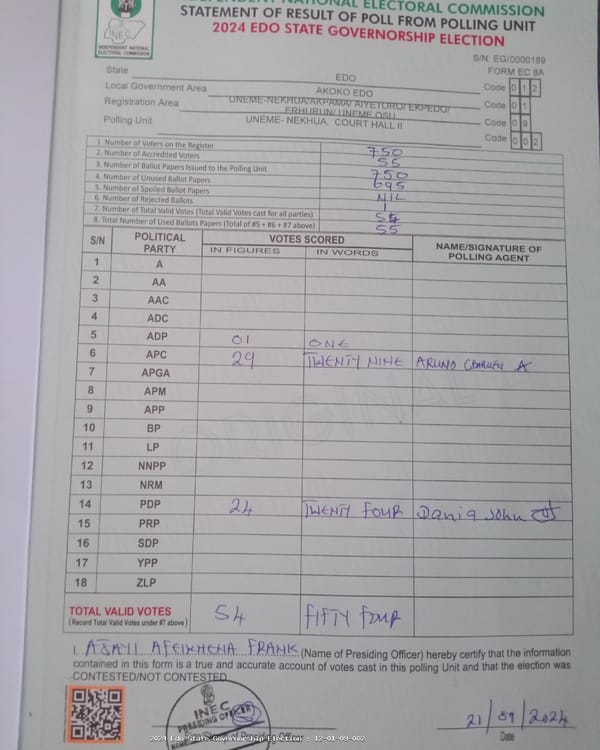 INDEPENDENT NATIONAL ELECTORAL COMMISSION
STATEMENT OF RESULT OF POLL FROM POLLING UNIT
2024 EDO STATE GOVERNORSHIP ELECTION
INEC
INDEPENDENT NATIONAL
ELECTORAL COMMISSION
S/N: EG/0000189
FORM EC 8A
State EDO Code 0 1 2
Local Government Area AKOKO EDO Code 0 1
Registration Area UNEME-NEKHUA/AKPAMA/ AIYETORO/ EKPEDO/ ERHURUN/ UNEME OSU Code 0 9
Polling Unit UNEME- NEKHUA, COURT HALL II Code 0 0 2
1. Number of Voters on the Register 750
2. Number of Accredited Voters 55
3. Number of Ballot Papers Issued to the Polling Unit 750
4. Number of Unused Ballot Papers 695
5. Number of Spoiled Ballot Papers NIL
6. Number of Rejected Ballots 1
7. Number of Total Valid Votes (Total Valid Votes cast for all parties) 54
8. Total Number of Used Ballots Papers (Total of #5 + #6 + #7 above) 55
S/N POLITICAL PARTY VOTES SCORED NAME/SIGNATURE OF POLLING AGENT
IN FIGURES IN WORDS
1 A
2 AA
3 AAC
4 ADC
5 ADP 01 ONE
6 APC 29 TWENTY NINE
7 APGA
8 APM
9 APP
10 BP
11 LP
12 NNPP
13 NRM
14 PDP 24 TWENTY FOUR Dania John
15 PRP
16 SDP
17 YPP
18 ZLP
TOTAL VALID VOTES 54 FIFTY FOUR
(Record Total Valid Votes under #7 above)
I, AJAYI AFEIKHENA FRANK (Name of Presiding Officer) hereby certify that the information
contained in this form is a true and accurate account of votes cast in this polling Unit and that the election was
CONTESTED/NOT CONTESTED
INEC
PRESIDING OFFICER
21/09/2024
Date
2024 Edo State Governorship Election : 12-01-09-002